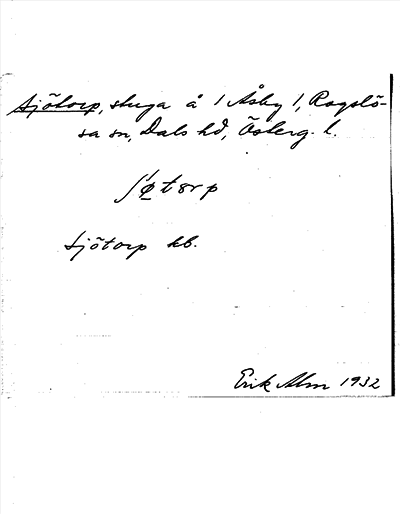 Sjötorp, stuga å 1 Åsby 1, Rogslö-
sa sn, Dals hd, Österg. l.
ʃǿ̲tɵrp
Sjötorp kb.
Erik Alm 1932